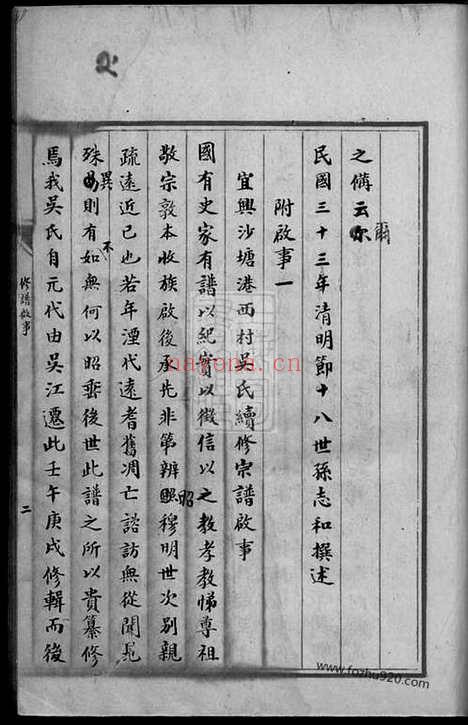 之備云尔
爾
民國三十三年清明節十八世孫志和撰述
附啟事一
宜興沙塘港西村吳氏續修宗譜啟事
國有史家有譜以紀實以徵信以之教孝教悌尊祖
敬宗敦本收族啟後承先非第辨昭穆明世次別親
疏遠近已也若年湮代遠耆舊凋亡諮訪無從聞見
殊異則有如無何以昭垂後世此譜之所以貴纂修
不
焉我吳氏自元代由吳江遷此壬午庚戌修輯而後
修譜啟事
二
nayona.cn
www.fozhu920.com